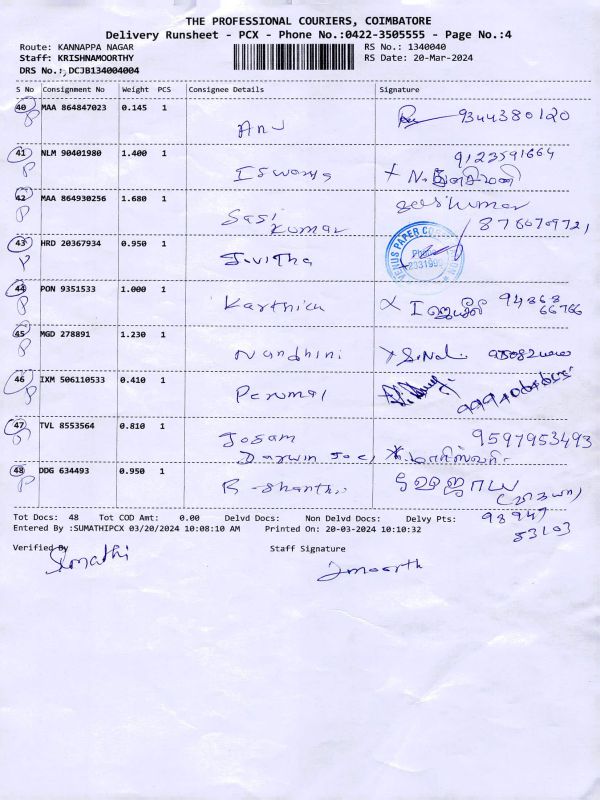 THE PROFESSIONAL COURIERS, COIMBATORE
Delivery Runsheet - PCX - Phone No.:0422-3505555 - Page No.:4
Route: KANNAPPA NAGAR
RS No.: 1340040
Staff: KRISHNAMOORTHY
RS Date: 20-Mar-2024
DRS No.: DCJB134004004
S No Consignment No Weight PCS Consignee Details Signature
40 MAA 864847023 0.145 1
P Anu 9344380120
41 NLM 90401980 1.400 1 9123591664
P Iswarya
42 MAA 864930256 1.680 1 Sasikumar
P Sasi Kumar
43 HRD 20367934 0.950 1
P Jivitha
44 PON 9351533 1.000 1
P Karthica 94863 66766
45 MGD 278891 1.230 1
P Nandhini
46 IXM 506110533 0.410 1
P Perumal
47 TVL 8553564 0.810 1
P 9597953493
Darwin
48 DDG 634493 0.950 1
P R-Shanthi
98947
83103
Tot Docs: 48 Tot COD Amt: 0.00 Delvd Docs: Non Delvd Docs: Delvy Pts:
Entered By :SUMATHIPCX 03/20/2024 10:08:10 AM Printed On: 20-03-2024 10:10:32
Verified By
Staff Signature
Sumathi